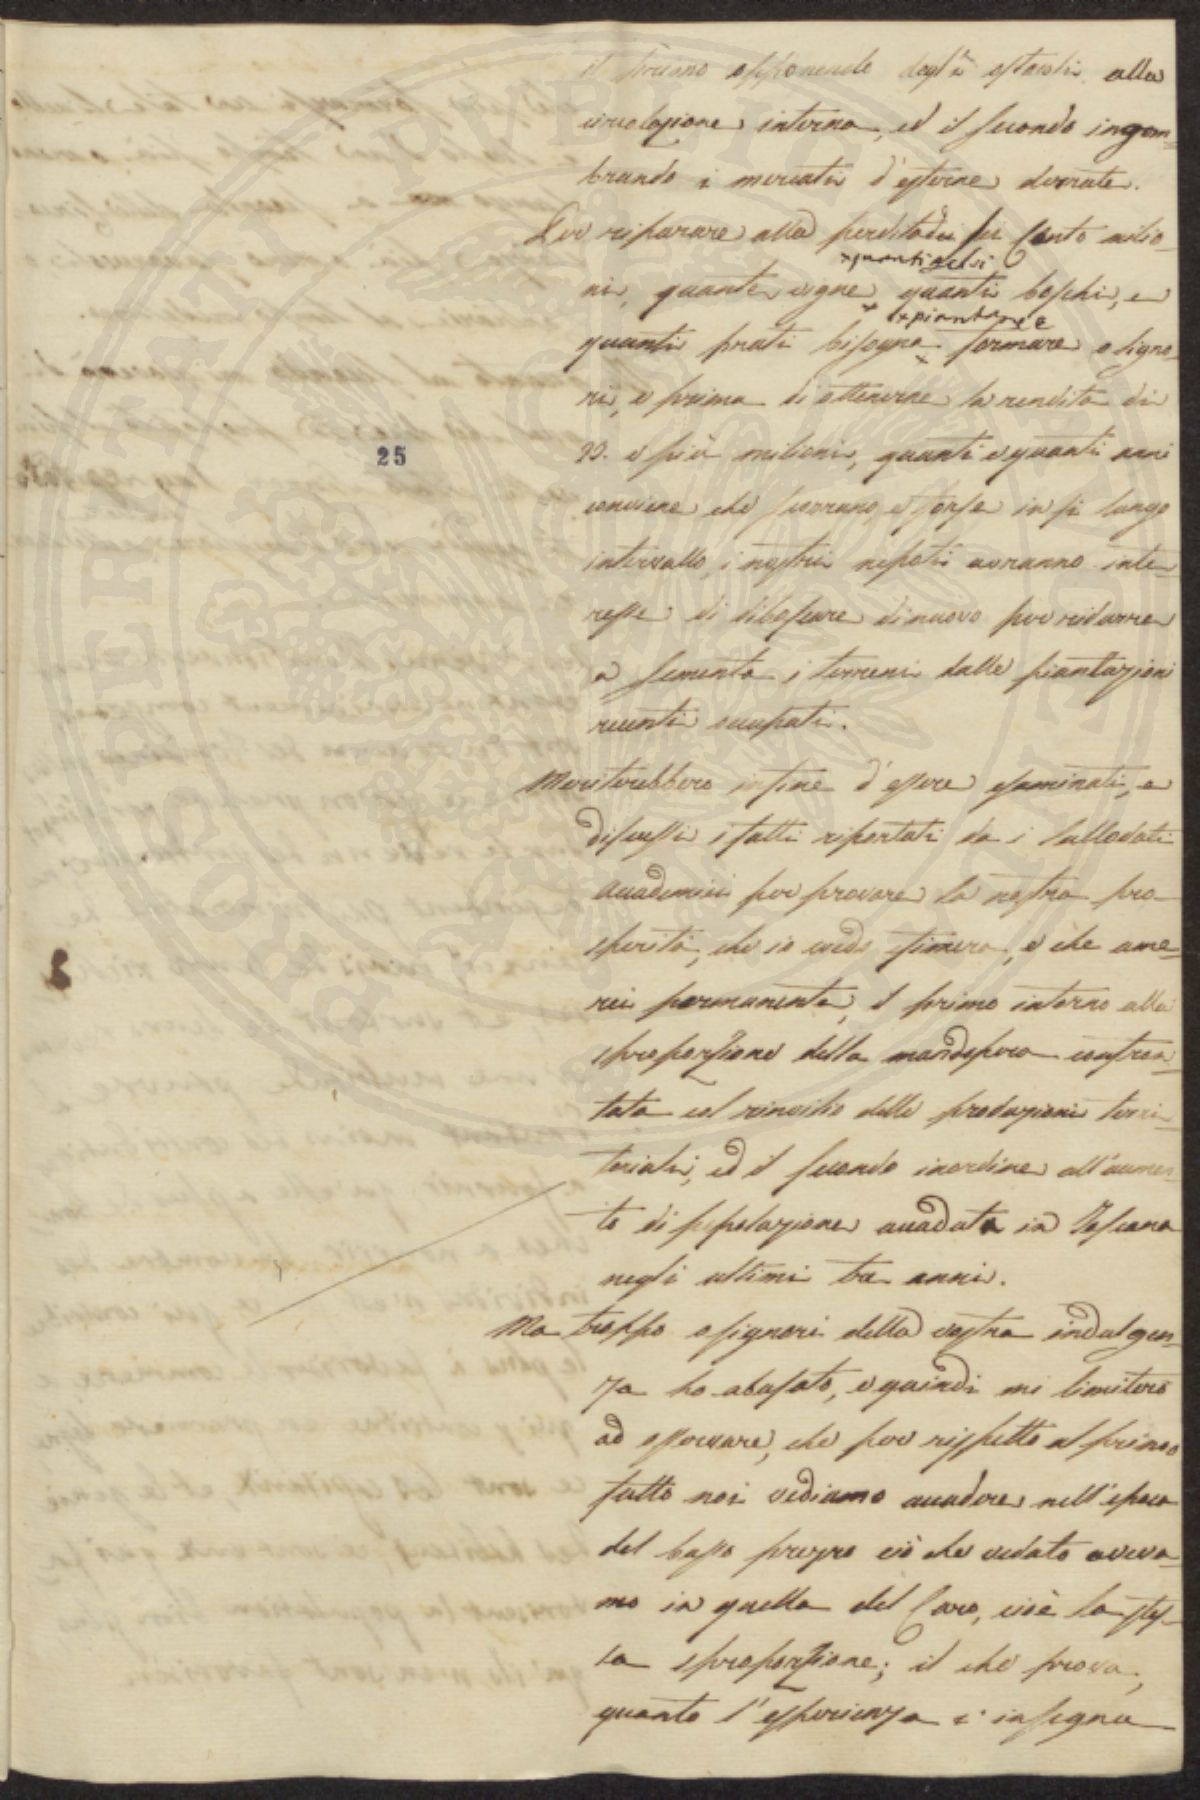 il primo opponendo degl'i ostacoli alla
circolazione interna, ed il secondo ingom=
brando i mercati d'esterne derrate.
Per riparare alla perdita di sei Cento milio=
ni, quante vigne × quanti boschi, e
× quanti gelsi
quanti prati bisogna × formare o signo=
× piantare e
ri, e prima di ottenerne la rendita di
25
20. e più milioni, quanti e quanti anni
conviene che scorrano, e forse in si lungo
intervallo, i nostri nepoti avranno inte=
resse di diboscare di nuovo per ridurre
a sementa i terreni dalle piantazioni
recenti occupati.
Meriterebbero infine d'essere esaminati, e
discussi i fatti riportati da i sullodati
Accademici per provare la nostra pro=
sperità, che io credo efimera, e che ame=
rei permanente, il primo intorno alla
sproporzione della mandopera confron=
tata col rinvilio delle produzioni terri=
toriali, ed il secondo inordine all'aumen=
to di popolazione accaduta in Toscana
negli ultimi tre anni.
Ma troppo o signori della vostra indulgen=
za ho abusato, e quindi mi limiterò
ad osservare, che per rispetto al primo
fatto noi vediamo accadere nell'epoca
del basso prezzo ciò che veduto aveva=
mo in quella del Caro, cioè la stes=
sa sproporzione; il che prova,
quanto l'esperienza c'insegna